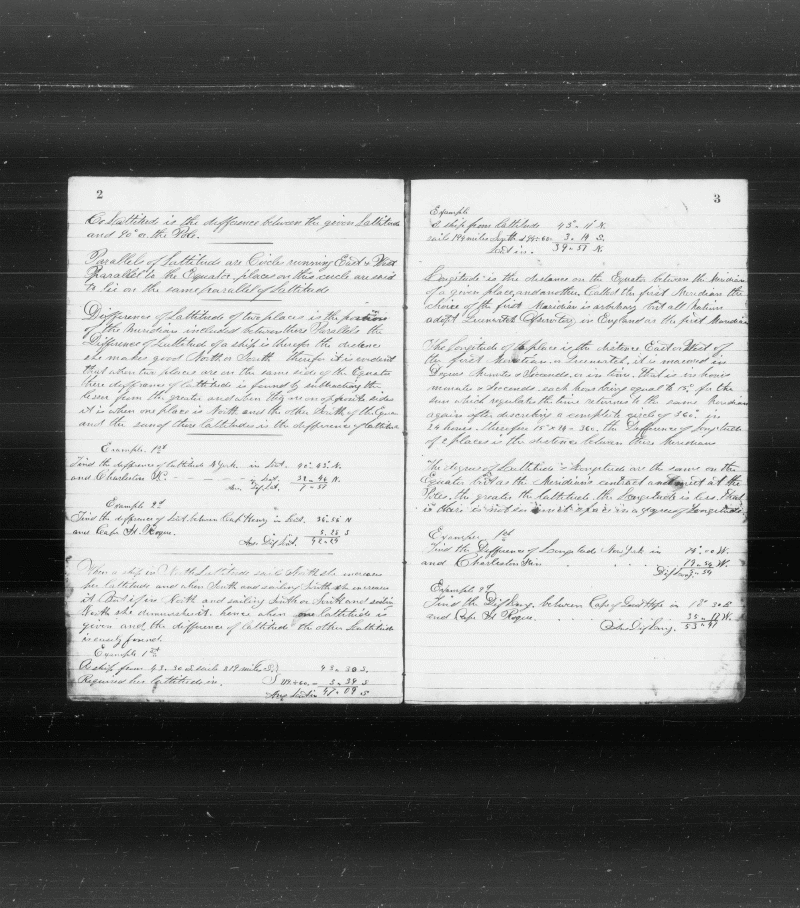 2
Co Lattitude is the difference between the given Lattitude
and 90° or the Pole.
Parallels of Lattitude are Circle running East & West
Parallel to the Equator, places on this circle are said
to lie on the same parallel of Lattitude
Difference of Lattitude of two places is the portion
of the Meridian included between there Parallels the
Difference of Lattitude of a ship is therefor the distance
she makes good North or South therefor it is evident
that when two places are on the same side of the Equator
there difference of lattitude is found by subtracting the
lesser from the greater and when they are on opposite sides
it is when one place is North and the other South of the Equa
and the sum of there lattitudes is the difference of lattitude
Example. 1st
Find the difference of lattitude N York. in Latt. 40°.43' N.
and Charleston in Latt. 32 - 46 N.
Ans. Dif Latt. 7 - 57
Example 2d
Find the difference of Latt. between Cape Henry in Latt. 36-56 N
and Cape St. Roque. 5.28 S
Ans Dif Latt. 42-24
When a ship in North Lattitude sails North she increases
her lattitude and when South and sailing South she increases
it. But if in North and sailing South or South and sailing
North she diminishes it. hence when one lattitude is
given and the difference of lattitude the other Lattitude
is easily found.
Example 1st
A ship from 43.30 S sails 219 miles S. 43-30 S.
Required her lattitude in. 219÷60= 3-39 S
Ans Latt in 47-09 S
3
Example
A ship from Lattitude 43-11 N
sails 194 miles South 194÷60= 3-14 S.
Latt in. 39-57 N.
Longitude is the distance on the Equator between the Meridian
of a given place and another. Called the first Meridian the
choice of the first Meridian is arbitrary but all Nations
adopt Greenwitch Observatory in England as the first Meridian
The longitude of a place is the distance East or West of
the first Meridian, or Greenwitch, it is measured in
Degrees Minutes & Seconds, or in time. That is in hours
minutes & Seconds each hour being equal to 15° for the
sun which regulates the time returns to the same Meridian
again after describing a complete circle of 360° in
24 hours. therefore 15 × 24 = 360. the Difference of longitude
of 2 places is the distance between there Meridians
The degrees of Lattitude & Longitude are the same on the
Equator but as the Meridians contract and meet at the
Poles, the greater the lattitude the Longitude is less. That
is there is not so much space in a degree of Longitude.
Example 1st
Find the Difference of Longitude New York in 74°.00 W.
and Charleston in 79-54 W.
Dif Long. 5-54
Example 2d
Find the Dif Long. between Cape of Good Hope in 18°.30 E
and Cape St Roque. 35-17 W.
Ans Dif Long. 53-47